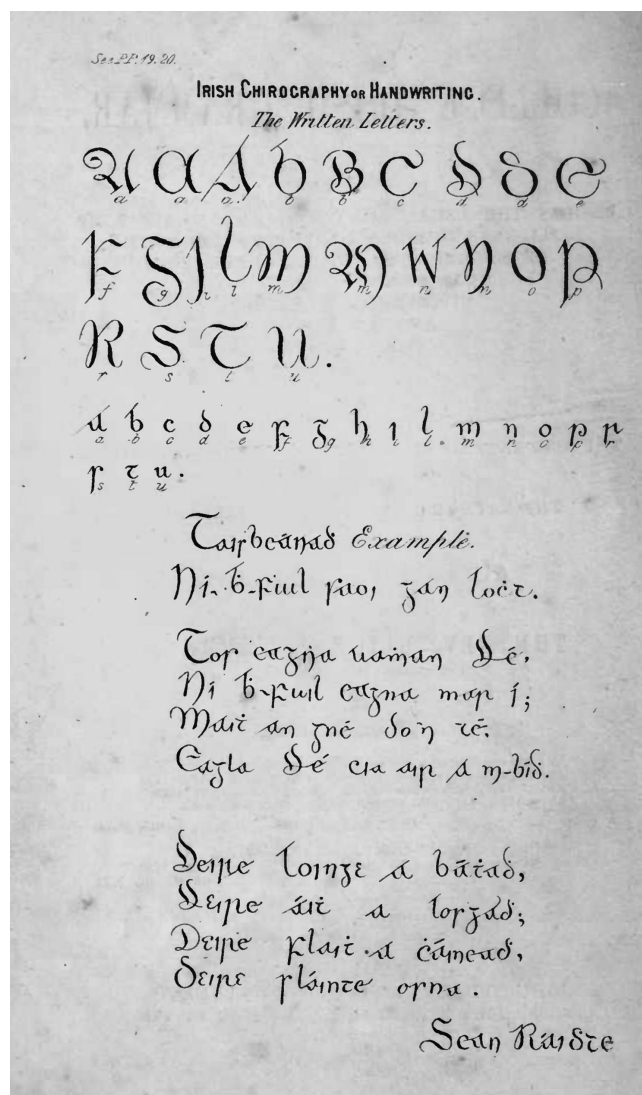 See P.P. 19. 20.
IRISH CHIROGRAPHY OR HANDWRITING.
The Written Letters.
A A A B B C D D E
a a a b b c d d e
F G I L M M N N O P
f g i l m m n n o p
R S T U.
r s t u
a b c d e f g h i l m n o p r
a b c d e f g h i l m n o p r
s t u.
s t u
Taisbeánaḋ Example.
Ní ḃ-fuil saoi gan loċt.
Tos eagna uaṁan Dé.
Ní ḃ-fuil eagna mar í;
Maiṫ an gné do'n té.
Eagla Dé cia air a m-bíḋ.
Deire loinge a báṫaḋ,
Deire áiṫ a losgaḋ;
Deire flaiṫ a ċáineaḋ,
Deire sláinte osna.
Sean Ráidte